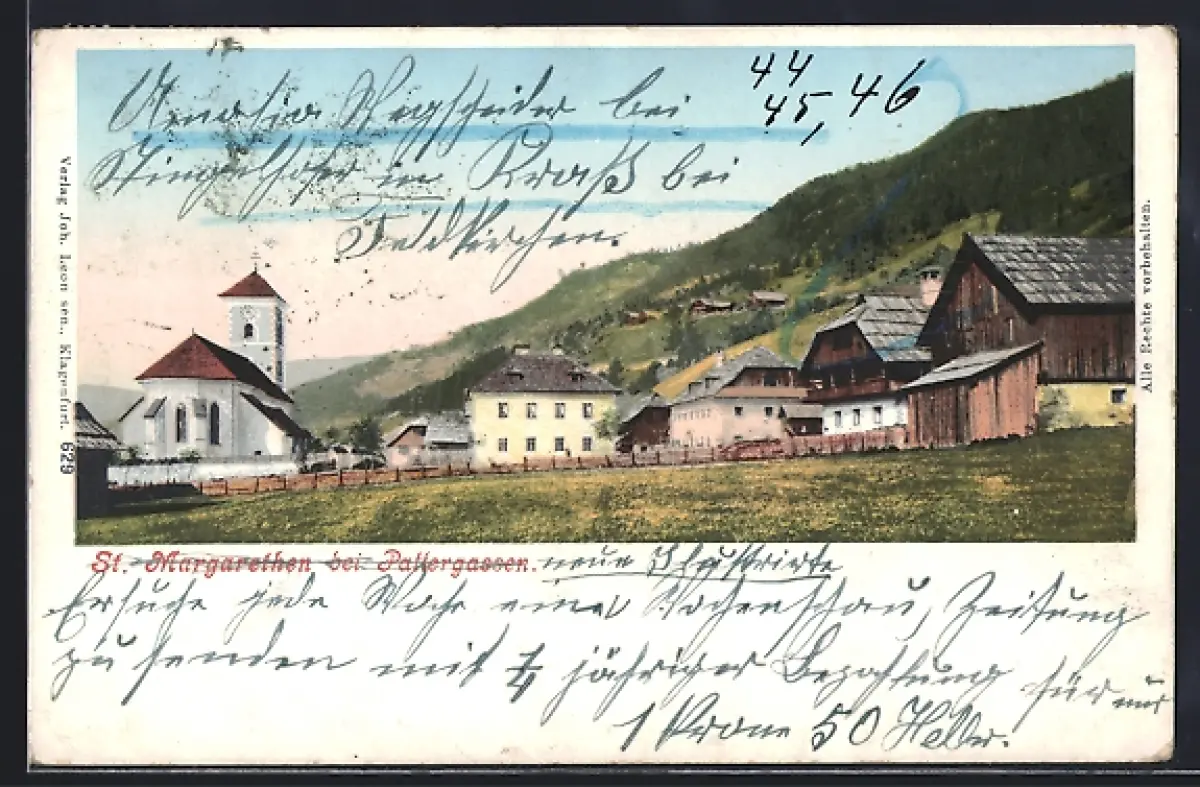 44
45, 46
Amalia Wegscheider bei
Stingelhofer in Kraß bei
Feldkirchen.
Verlag Joh. Leon sen., Klagenfurt. 629
Alle Rechte vorbehalten.
St. Margarethen bei Pattergassen.
neue Illustrirte
Ersuche jede Woche eine Wochenschau, Zeitung
zu senden mit ¼ jähriger Bezahlung für nur
1 Krone 50 Heller.